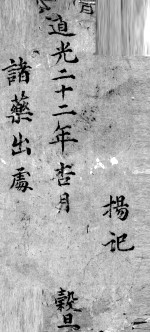 揚記
道光二十二年杏月
穀旦
諸藥出處